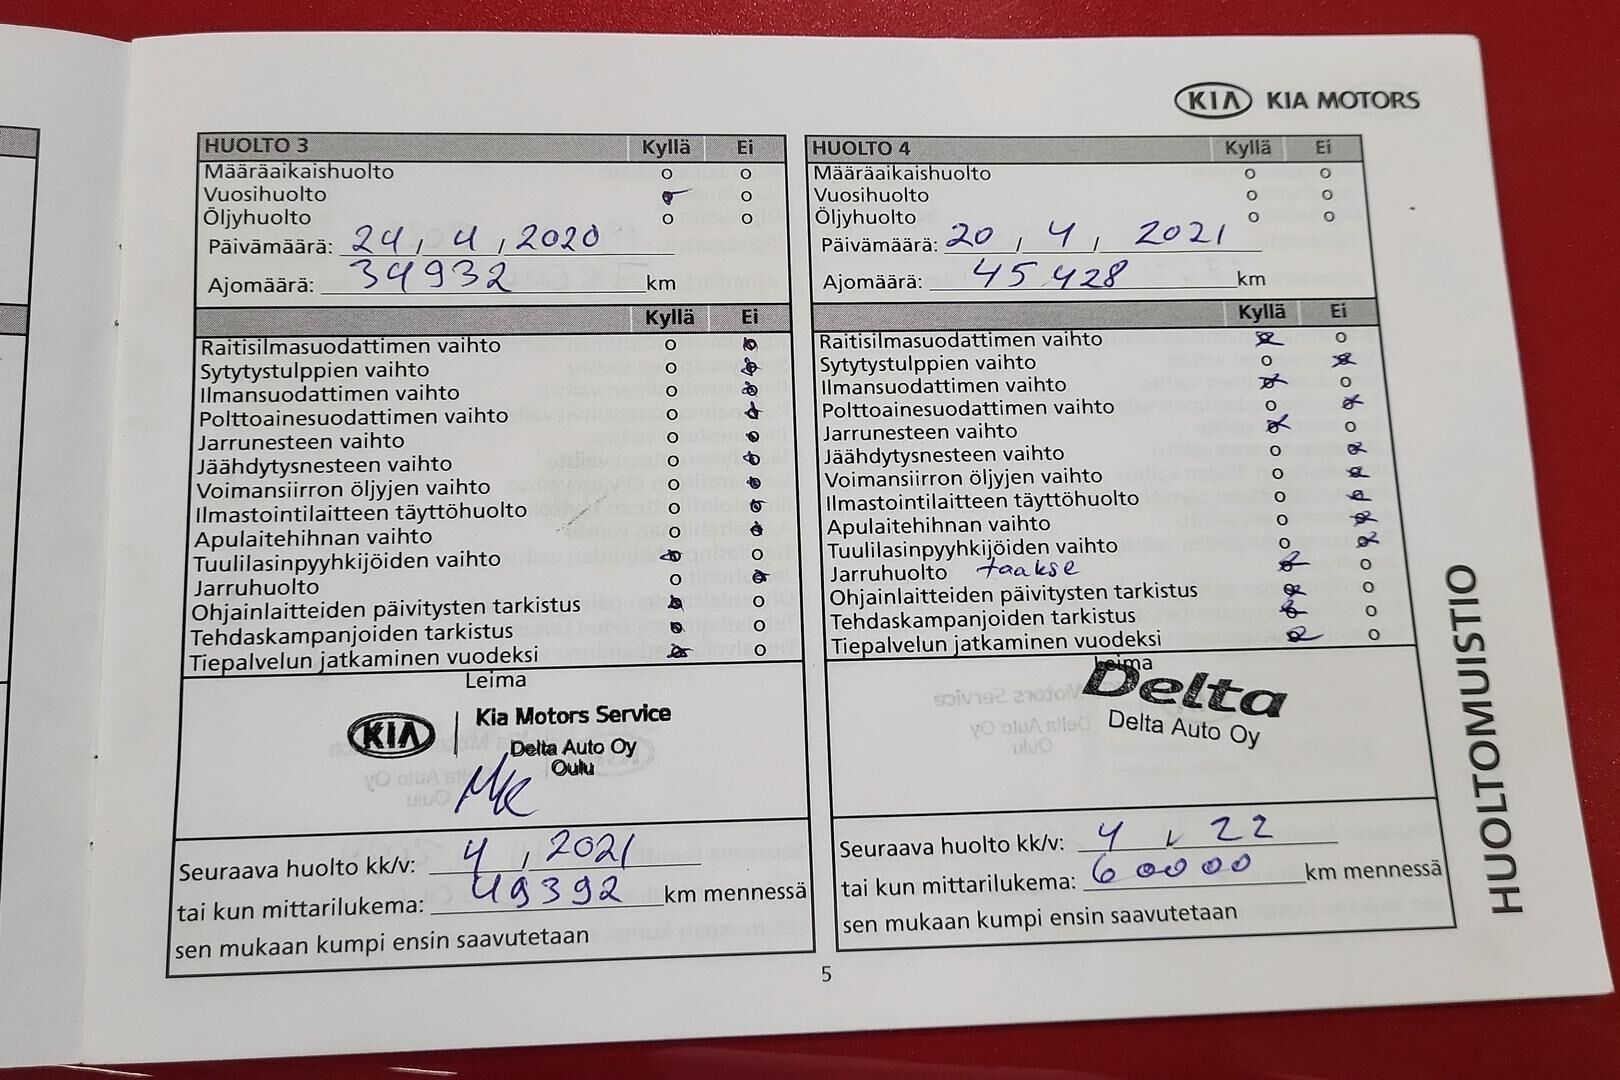 KIA KIA MOTORS
HUOLTO 3 Kyllä Ei
Määräaikaishuolto o o
Vuosihuolto o
Öljyhuolto o o
Päivämäärä: 24 , 4 , 2020
Ajomäärä: 34932 km
Kyllä Ei
Raitisilmasuodattimen vaihto o
Sytytystulppien vaihto o
Ilmansuodattimen vaihto o
Polttoainesuodattimen vaihto o
Jarrunesteen vaihto o
Jäähdytysnesteen vaihto o
Voimansiirron öljyjen vaihto o
Ilmastointilaitteen täyttöhuolto o
Apulaitehihnan vaihto o
Tuulilasinpyyhkijöiden vaihto o
Jarruhuolto o
Ohjainlaitteiden päivitysten tarkistus o
Tehdaskampanjoiden tarkistus o
Tiepalvelun jatkaminen vuodeksi o
Leima
KIA Kia Motors Service
Delta Auto Oy
Oulu
Seuraava huolto kk/v: 4 , 2021
tai kun mittarilukema: 49392 km mennessä
sen mukaan kumpi ensin saavutetaan
HUOLTO 4 Kyllä Ei
Määräaikaishuolto o o
Vuosihuolto o o
Öljyhuolto o o
Päivämäärä: 20 , 4 , 2021
Ajomäärä: 45 428 km
Kyllä Ei
Raitisilmasuodattimen vaihto o
Sytytystulppien vaihto o
Ilmansuodattimen vaihto o
Polttoainesuodattimen vaihto o
Jarrunesteen vaihto o
Jäähdytysnesteen vaihto o
Voimansiirron öljyjen vaihto o
Ilmastointilaitteen täyttöhuolto o
Apulaitehihnan vaihto o
Tuulilasinpyyhkijöiden vaihto o
Jarruhuolto taakse o
Ohjainlaitteiden päivitysten tarkistus o
Tehdaskampanjoiden tarkistus o
Tiepalvelun jatkaminen vuodeksi o
Leima
Delta
Delta Auto Oy
Seuraava huolto kk/v: 4 , 22
tai kun mittarilukema: 60000 km mennessä
sen mukaan kumpi ensin saavutetaan
HUOLTOMUISTIO
5